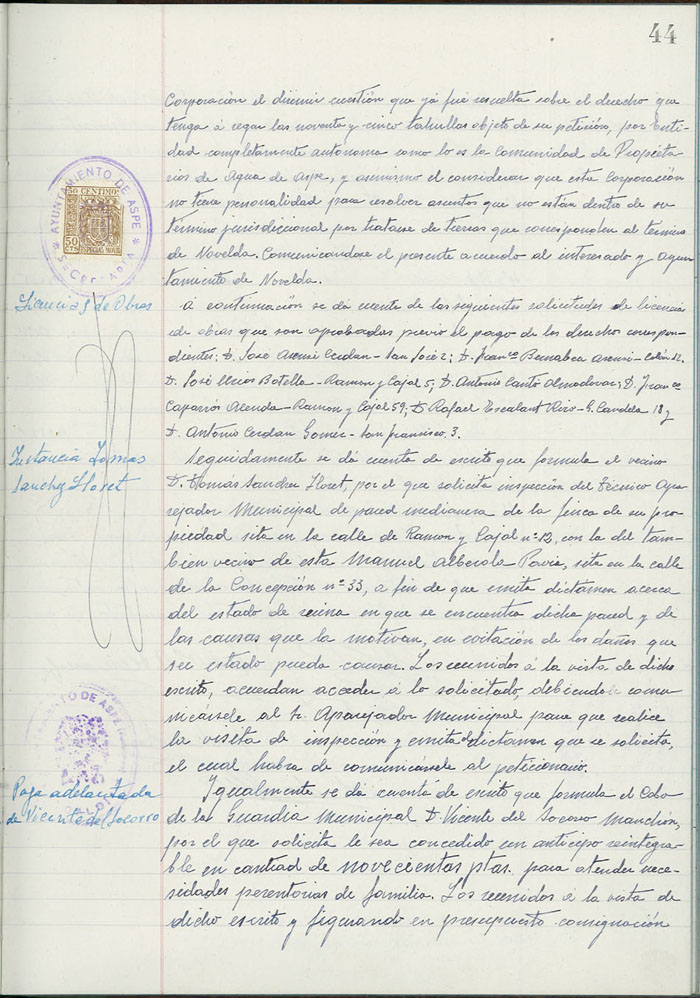 44
Corporación el dirimir cuestión que yá fué resuelta sobre el derecho que
tenga á regar las noventa y cinco tahullas objeto de su petición, por enti-
dad completamente autónoma como lo es la Comunidad de Propieta-
rios de Agua de Aspe, y asimismo el considerar que esta Corporación
no tiene personalidad para resolver asuntos que no están dentro de su
término jurisdiccional por tratarse de tierras que corresponden al término
de Novelda. Comunicándose el presente acuerdo al interesado y ayun-
tamiento de Novelda.
AYUNTAMIENTO DE ASPE
Secretaria
50 CENTIMOS
50 CTS
ESPECIAL MOVIL
Licencias de Obras
A continuación se dá cuenta de las siguientes solicitudes de licencias
de obras que son aprobadas previo el pago de los derechos correspon-
dientes: D. José Asensi Cerdan - San José 2; D. Franco Bernabeu Asensi - Colón 12.
D. José Mira Botella - Ramon y Cajal 5; D. Antonio Cantó Almodovar; D. Franco
Caparrós Alenda - Ramon y Cajal 59; D. Rafael Escalant Rizo - G. Candela 18 y
D. Antonio Cerdan Gomez - San Francisco, 3.
Instancia Tomas
Sanchez Lloret
Seguidamente se dá cuenta de escrito que formula el vecino
D. Tomas Sanchez Lloret, por el que solicita inspección del Técnico Apa-
rejador Municipal de pared medianera de la finca de su pro-
piedad sita en la calle de Ramon y Cajal nº 12, con la del tam-
bien vecino de esta Manuel Alberola Pavia, sita en la calle
de la Concepción nº 33, a fin de que emita dictamen acerca
del estado de ruina en que se encuentra dicha pared y de
las causas que la motivan, en evitación de los daños que
su estado pueda causar. Los reunidos á la vista de dicho
escrito, acuerdan acceder á lo solicitado, debiéndole comu-
nicársele al Sr. Aparejador Municipal para que realice
la visita de inspección y emita el dictamen que se solicita,
el cual habrá de comunicársele al peticionario.
AYUNTAMIENTO DE ASPE
ALCALDIA
Paga adelantada
de Vicente del Socorro
Igualmente se dá cuenta de escrito que formula el Cabo
de la Guardia Municipal D. Vicente del Socorro Manchón,
por el que solicita le sea concedido un anticipo reintegra-
ble en cantidad de novecientas ptas. para atender nece-
sidades perentorias de familia. Los reunidos á la vista de
dicho escrito y figurando en presupuesto consignación